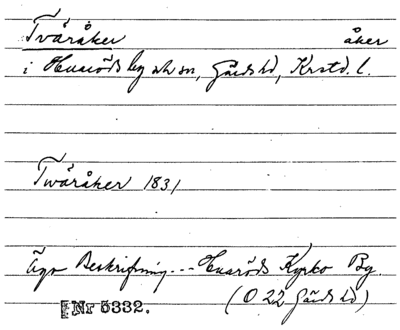 Tvåråker åker
i Huaröds by o. sn, Gärds hd, Krstd. l.
Twåråker 1831
Ägo Beskrifning... Huaröds Kyrko By.
(O 22 Gärds hd)
Nr 5332.